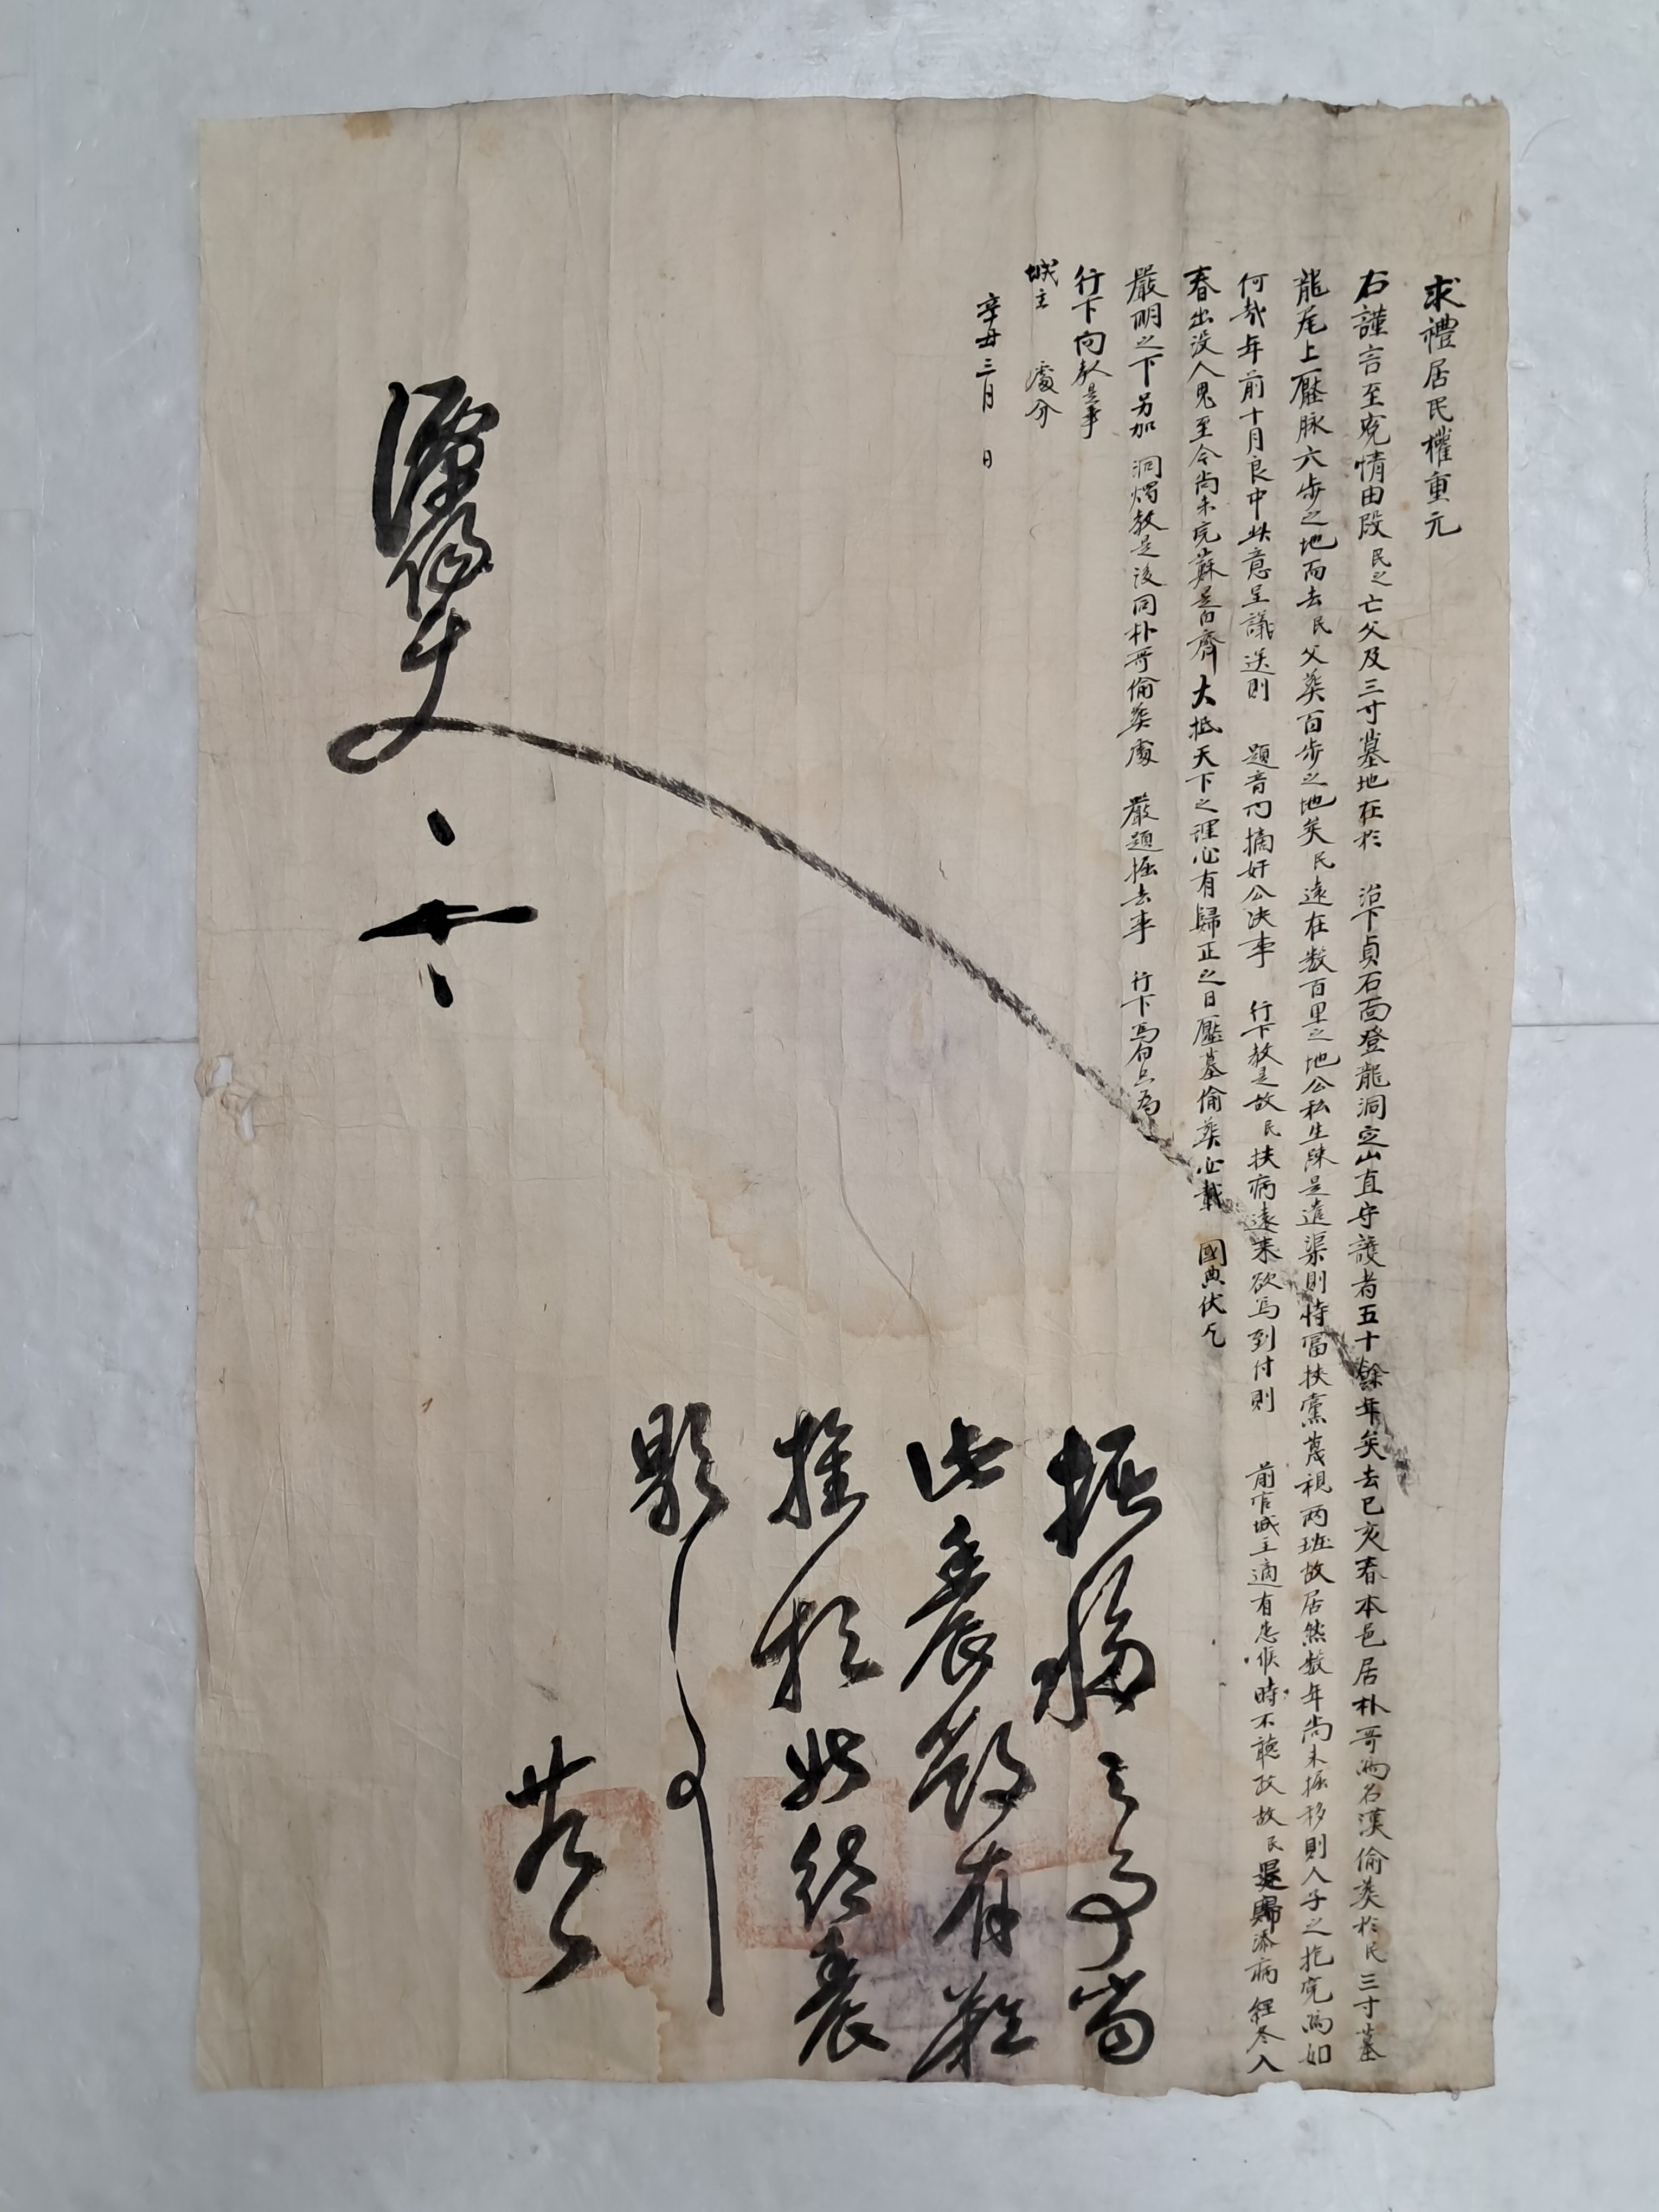 求禮居民權重元
右謹言至寃情由段民之亡父及三寸墓地在於 治下貞石面登龍洞定山直守護者五十餘年矣去己亥春本邑居朴哥爲名漢偷葬於民三寸墓
龍尾上壓脉六步之地而去民父葬百步之地矣民遠在数百里之地公私生踈是遣渠則恃富挾黨蔑視两班故居然数年尚未掘移則人子之抱寃爲如
何哉年前十月良中此意呈議送則 題音內摘奸公决事 行下教是故民扶病遠来欲爲到付則 前官城主適有患候時不聽政故民退歸添病經冬入
春出没人鬼至今尚未完蘇是白齊大抵天下之理必有歸正之日壓墓偷葬必載 國典伏乞
嚴明之下另加 洞燭教是後同朴哥偷葬處 嚴題掘去事 行下爲白只爲
行下向教是事
城主 處分
辛丑三月 日
掘移之事當
此農節有難
推於此待農
歇